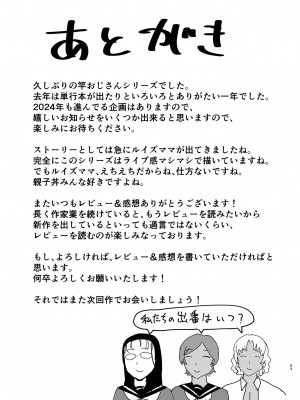 あとがき
久しぶりの竿おじさんシリーズでした。
去年は単行本が出たりといろいろとありがたい一年でした。
2024年も進んでる企画はありますので、
嬉しいお知らせをいくつか出来ると思いますので、
楽しみにお待ちください。
ストーリーとしては急にルイズママが出てきましたね。
完全にこのシリーズはライブ感マシマシで描いていますね。
でもルイズママ、えちえちだからね、仕方ないですね。
親子丼みんな好きですよね。
またいつもレビュー&感想ありがとうございます！
長く作家業を続けていると、もうレビューを読みたいから
新作を出しているといっても過言ではないくらい、
レビューを読むのが楽しみなっております。
もし、よろしければ、レビュー&感想を書いていただければと
思います。
何卒よろしくお願いいたします！
それではまた次回作でお会いしましょう！
私たちの出番はいつ？